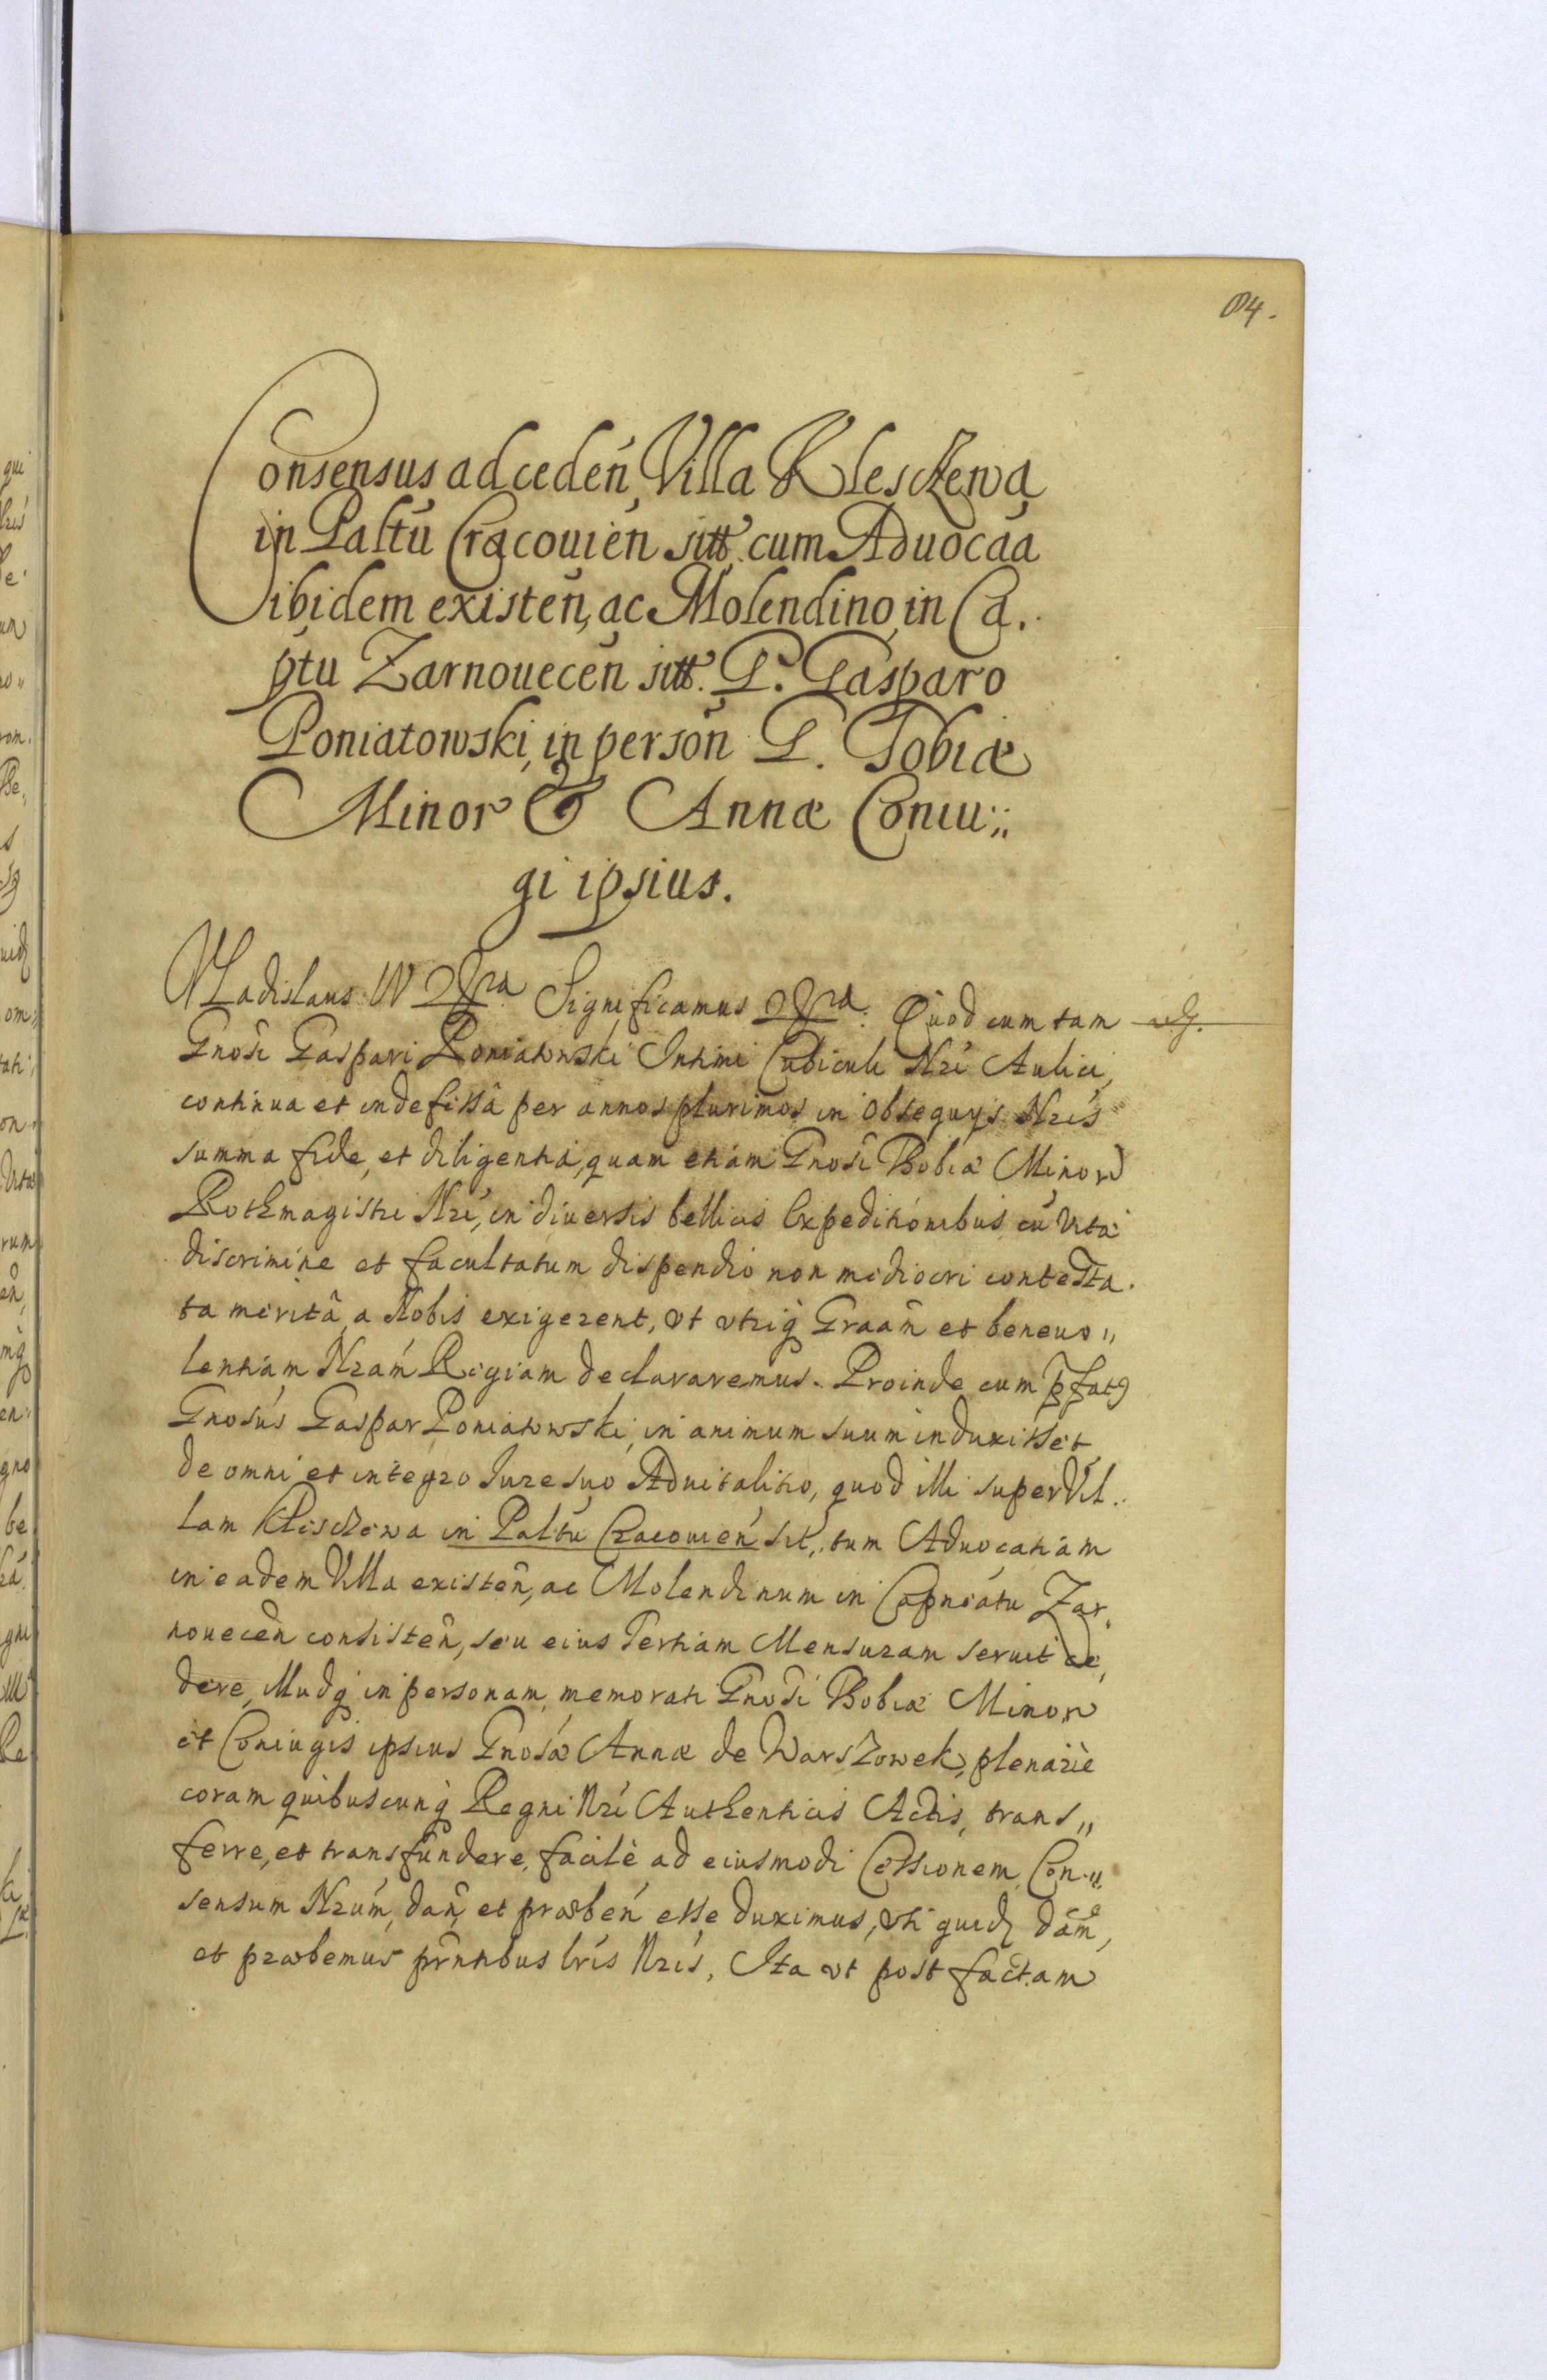 84.
Consensus ad ceden̄ Villa Klesczewa
in Paltū Cracouien̄ sitt. cum Aduocāa
ibidem existen̄, ac Molendino in Ca.
ptu Zarnouecen̄ sitt. G. Gasparo
Poniatowski, in person̄ G. Tobiæ
Minor & Annæ Coniu,,
gi ipsius.
Vladislaus IV Significamus Quod cum tam
Gnosi Gaspari Poniatowski Intimi Cubiculi Nri Aulici,
continua et indefissâ per annos plurimos in obsequys Nris
summa fide, et diligentia, quam etiam Gnosi Thobiæ Minor
Rothmagistri Nri, in diuersis bellicis Expeditionibus, cū vitæ
discrimine et facultatum dispendio non mediocri contesta.
ta meritâ, a Nobis exigerent, vt vtriq̨ Graān et beneuo,,
lentiam Nram Regiam declararemus. Proinde cum p̄fat9
Gnosus Gaspar Poniatowski, in animum suum induxisset,
de omni et integro Iure suo Aduitalitio, quod illi super Vil..
lam Klesczewa in Paltū Cracouien̄ sit, tum Aduocatiam
in eadem Villa existen̄, ac Molendinum in Capneātu Zar.
nouecen̄ consisten̄, seu eius Tertiam Mensuram seruit ce,
dere, Illudq̨ in personam, memorati Gnosi Thobiæ Minor
et Coniugis ipsius Gnosæ Annæ de Warszowek, plenariè
coram quibuscunq̨ Regni Nri Authenticis Actis, trans,,
ferre, et transfundere, facilè ad eiusmodi Cessionem, Con,,
sensum Nrum, dan̄, et præben̄ esse duximus, vti quidȝ dam9,
et præbemus pr̄ntibus lris Nris, Ita vt post factam